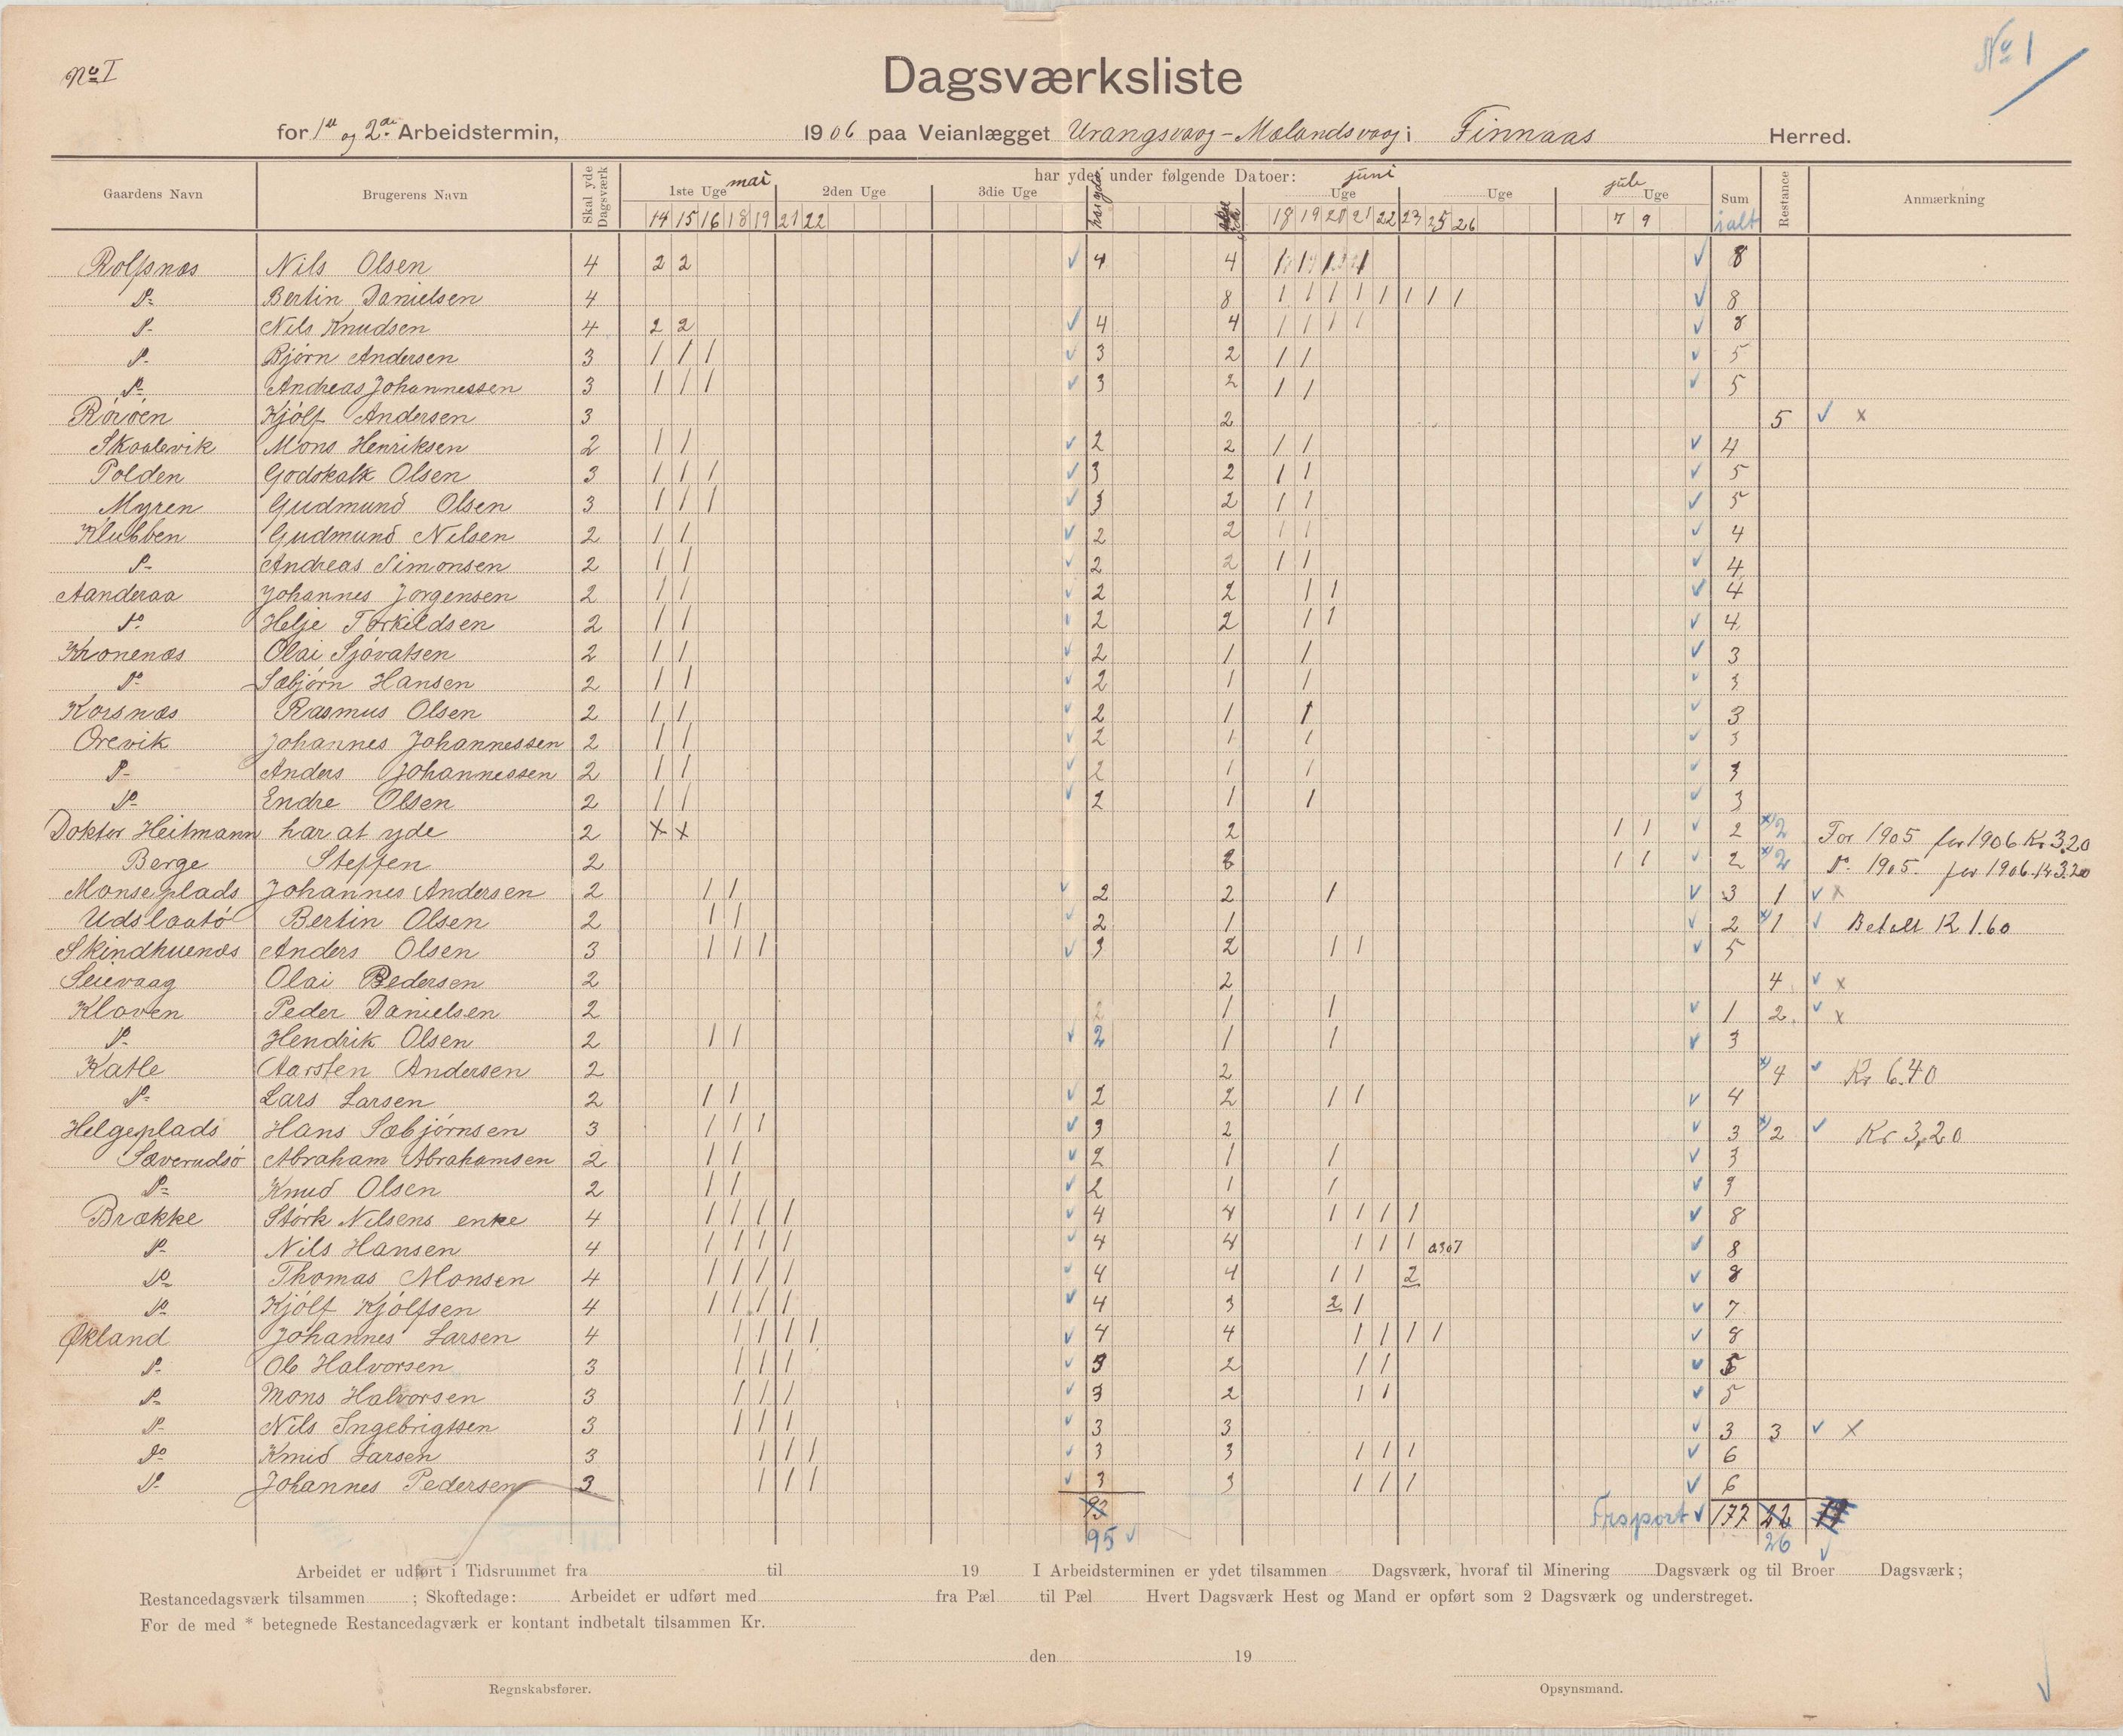 No I
No 1
Dagsværksliste
for 1ste og 2den Arbeidstermin, 1906 paa Veianlægget Urangsvaag - Mælandsvaag i Finnaas Herred.
Gaardens Navn Brugerens Navn Skal yde Dagsværk har ydet under følgende Datoer: Sum ialt Restance Anmærkning
1ste Uge mai 2den Uge 3die Uge har ydet juni Uge Uge jule Uge
14 15 16 18 19 21 22 18 19 20 21 22 23 25 26 7 9
Rolfsnæs Nils Olsen 4 2 2 4 4 1 1 1 1 8
Do Bertin Danielsen 4 8 1 1 1 1 1 1 1 1 8
Do Nils Knudsen 4 2 2 4 4 1 1 1 1 8
Do Bjørn Andersen 3 1 1 1 3 2 1 1 5
Do Andreas Johannessen 3 1 1 1 3 2 1 1 5
Rørøen Kjölf Andersen 3 2 5 x
Skaalevik Mons Henriksen 2 1 1 2 2 1 1 4
Polden Godskalk Olsen 3 1 1 1 3 2 1 1 5
Myren Gudmund Olsen 3 1 1 1 3 2 1 1 5
Klubben Gudmund Nilsen 2 1 1 2 2 1 1 4
Do Andreas Simonsen 2 1 1 2 2 1 1 4
Aanderaa Johannes Jørgensen 2 1 1 2 2 1 1 4
Do Helje Torkildsen 2 1 1 2 2 1 1 4
Kronenæs Olai Sjövatsen 2 1 1 2 1 1 3
Do Sæbjørn Hansen 2 1 1 2 1 1 3
Korsnæs Rasmus Olsen 2 1 1 2 1 1 3
Orevik Johannes Johannessen 2 1 1 2 1 1 3
Do Anders Johannessen 2 1 1 2 1 1 3
Do Endre Olsen 2 1 1 2 1 1 3
Doktor Heitmann har at yde 2 x x 2 1 1 2 x) 2 For 1905 for 1906 Kr 3.20
Berge Steffen 2 2 1 1 2 x) 2 Do 1905. for 1906. Kr 3.20
Monseplads Johannes Andersen 2 1 1 2 2 1 3 1 x
Udslaatö Bertin Olsen 2 1 1 2 1 2 x) 1 Betalt K 1.60
Skindhuenæs Anders Olsen 3 1 1 1 3 2 1 1 5
Seievaag Olai Pedersen 2 2 4 x
Kloven Peder Danielsen 2 2 1 1 1 2 x
Do Hendrik Olsen 2 1 1 2 1 1 3
Katle Aarsten Andersen 2 2 x) 4 Kr 6.40
Do Lars Larsen 2 1 1 2 2 1 1 4
Helgeplads Hans Sæbjørnsen 3 1 1 1 3 2 3 x) 2 Kr 3,20
Sæverudsö Abraham Abrahamsen 2 1 1 2 1 1 3
Do Knud Olsen 2 1 1 2 1 1 3
Brække Störk Nilsens enke 4 1 1 1 1 4 4 1 1 1 1 8
Do Nils Hansen 4 1 1 1 1 4 4 1 1 1 8
Do Thomas Monsen 4 1 1 1 1 4 4 1 1 2 8
Do Kjölf Kjölfsen 4 1 1 1 1 4 3 2 1 7
Økland Johannes Larsen 4 1 1 1 1 4 4 1 1 1 1 8
Do Ole Halvorsen 3 1 1 1 3 2 1 1 5
Do Mons Halvorsen 3 1 1 1 3 2 1 1 5
Do Nils Ingebrigtsen 3 1 1 1 3 3 3 3 x
Do Knud Larsen 3 1 1 1 3 3 1 1 1 6
Do Johannes Pedersen 3 1 1 1 3 3 1 1 1 6
93 Trsport 177 22
95 26
Arbeidet er udført i Tidsrummet fra til 19 I Arbeidsterminen er ydet tilsammen Dagsværk, hvoraf til Minering Dagsværk og til Broer Dagsværk;
Restancedagsværk tilsammen ; Skoftedage: Arbeidet er udført med fra Pæl til Pæl Hvert Dagsværk Hest og Mand er opført som 2 Dagsværk og understreget.
For de med * betegnede Restancedagværk er kontant indbetalt tilsammen Kr.
den 19
Regnskabsfører. Opsynsmand.